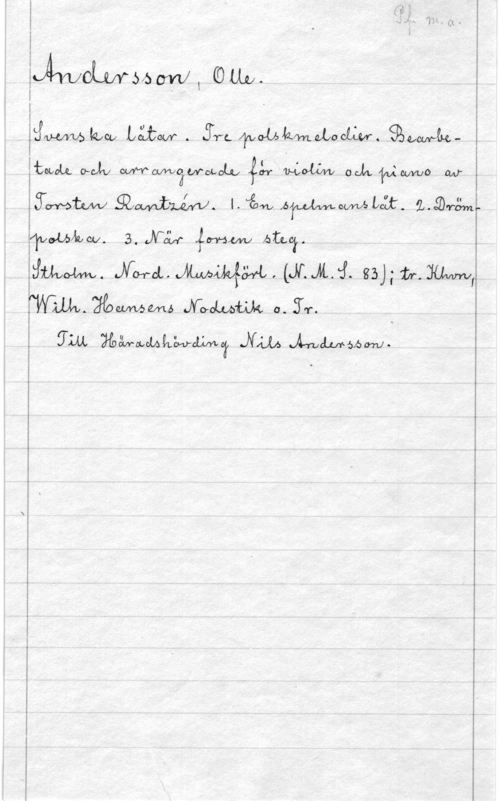 Pf. m. a.
Andersson, Olle.
Svenska låtar. Tre polskmelodier. Bearbe-
tade och arrangerade för violin och piano av
Torsten Rantzén. 1. En spelmanslåt. 2. Dröm-
polska. 3. När forsen steg.
Stholm. Nord. Musikförl. (N.M.S. 83); tr. Khvn,
Wilh. Hansens Nodestik o. Tr.
Till Häradshövding Nils Andersson.